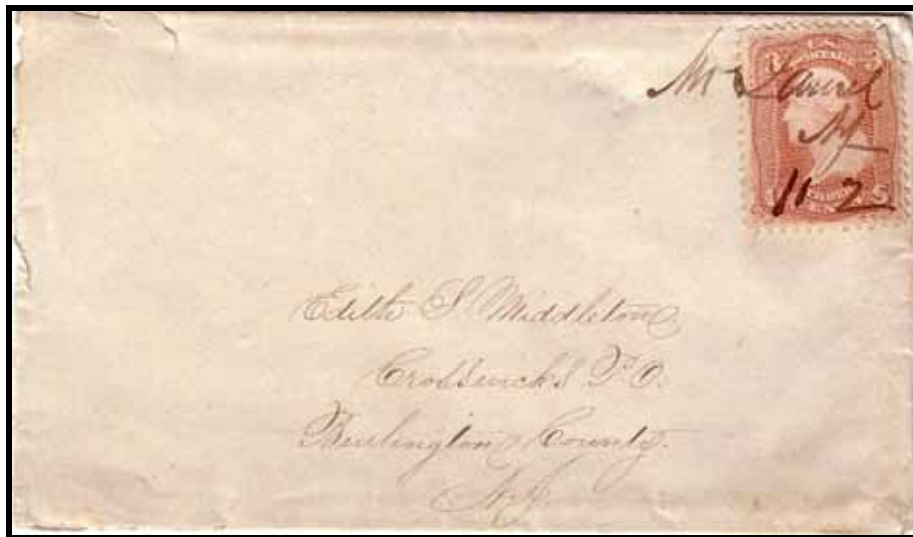 Mt Laurel
NJ
11 2
Edith S. Middleton
Crosswicks P.O.
Burlington County.
N.J.